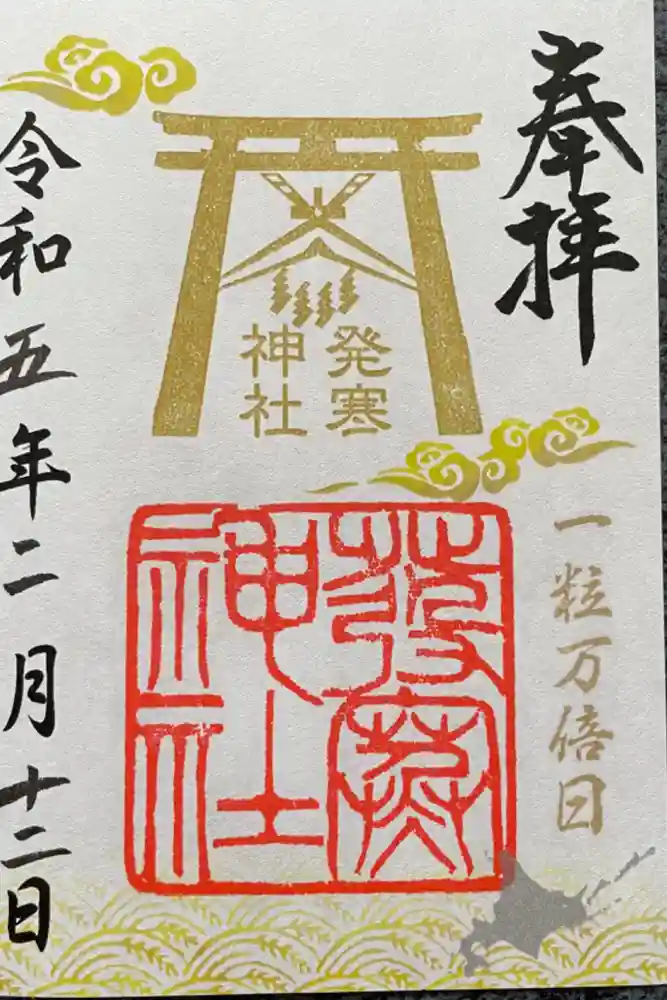 奉拝
発寒
神社
一粒万倍日
發寒
神社
令和五年二月十二日